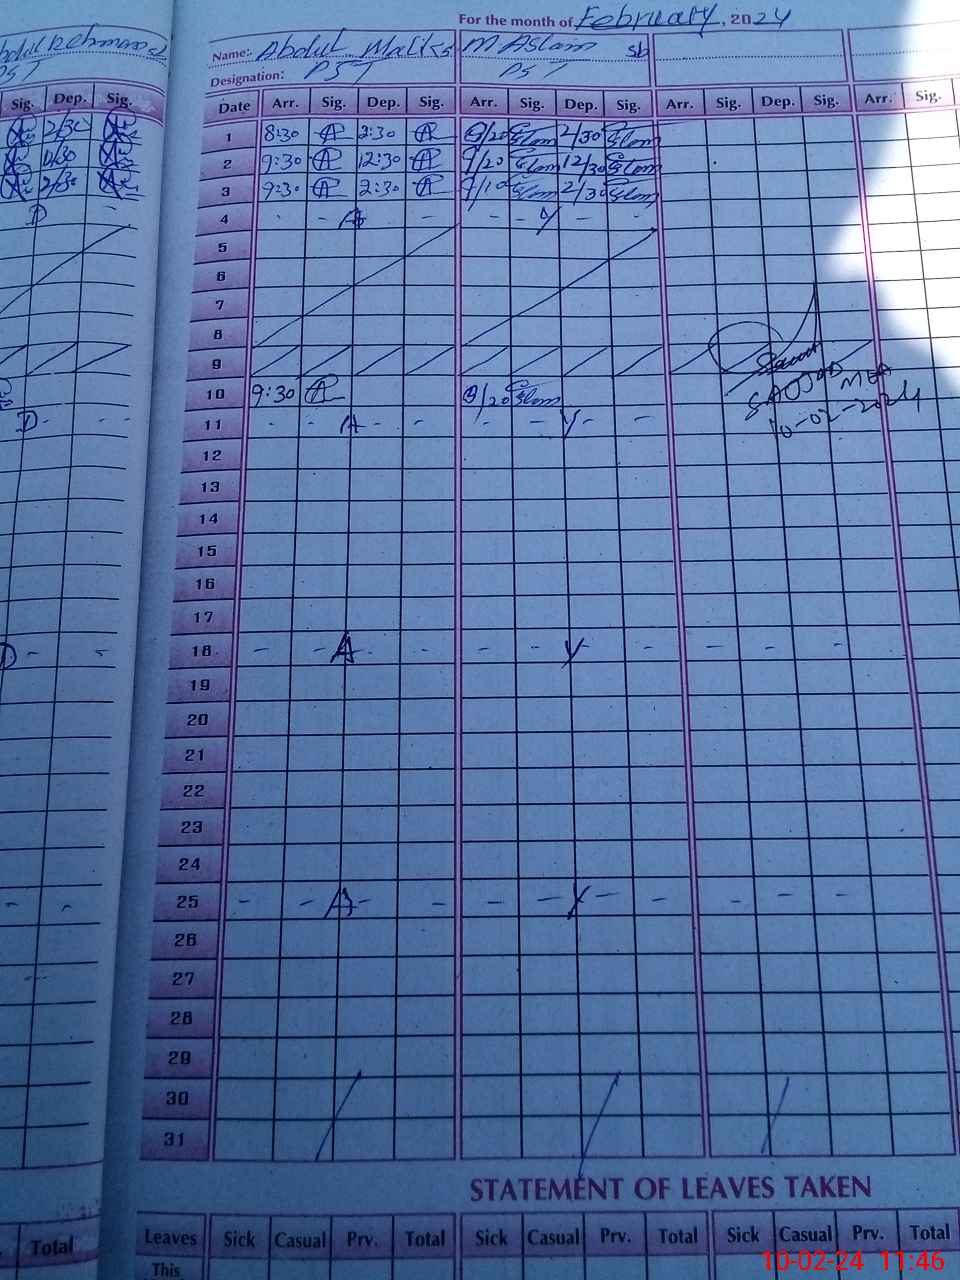 For the month of February, 2024
Name:- Abdul Malik sb M Aslam sb
Designation: PST PST
Sig. Dep. Sig. Date Arr. Sig. Dep. Sig. Arr. Sig. Dep. Sig. Arr. Sig. Dep. Sig. Arr. Sig.
2/30 1 8:30 2:30 9/20 Aslam 2/30 Aslam
2 9:30 12:30 9/20 Aslam 12/30 Aslam
2/30 3 9:30 2:30 9/10 Aslam 2/30 Aslam
D - 4 - - A - - - Y - -
5
6
7
8
9
10 9:30 9/20 Aslam
SAJJAD MEA
10-02-2024
D - - 11 - - A - - - - Y - -
12
13
14
15
16
17
D - - 18 - - A - - - - Y - - - - -
19
20
21
22
23
24
- - 25 - - A - - - - Y - - - - -
26
27
28
29
30
31
STATEMENT OF LEAVES TAKEN
Total Leaves Sick Casual Prv. Total Sick Casual Prv. Total Sick Casual Prv. Total
This
10-02-24 11:46